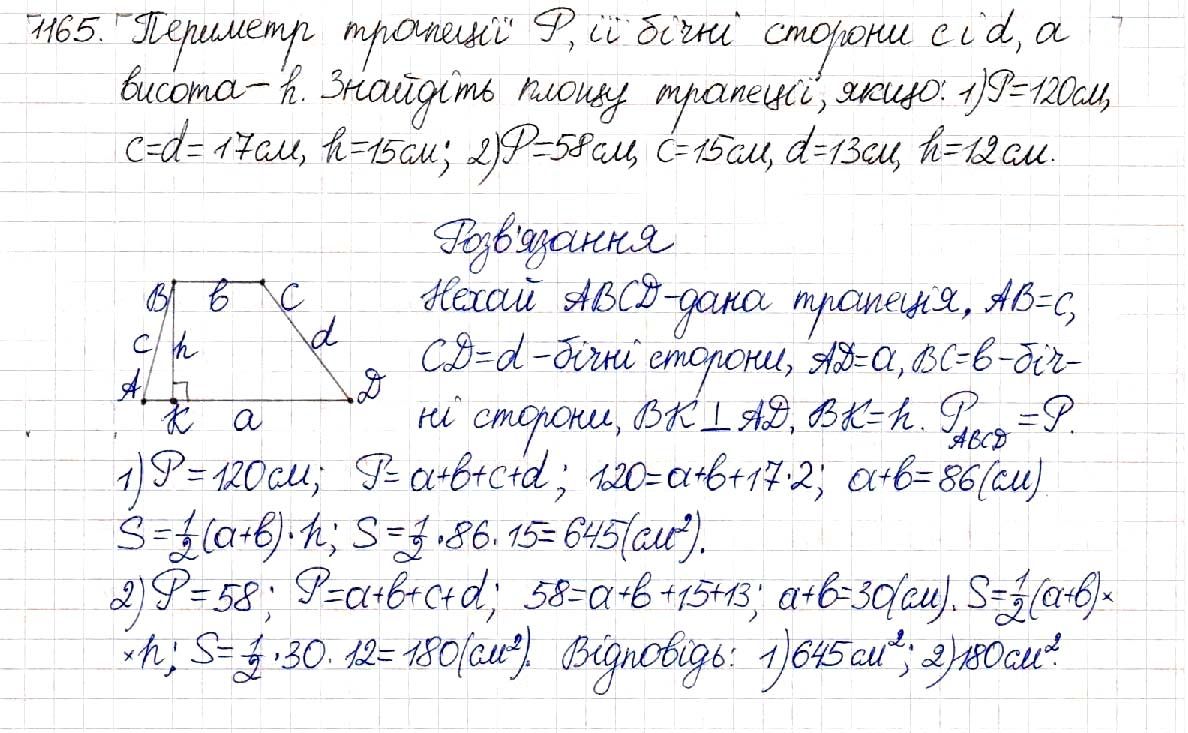 1165. Периметр трапеції P, її бічні сторони c і d, а
висота – h. Знайдіть площу трапеції, якщо: 1) P=120см,
c=d=17см, h=15см; 2) P=58см, c=15см, d=13см, h=12см.
Розв'язання
B b C
c h d
A K a D
Нехай ABCD-дана трапеція, AB=c,
CD=d-бічні сторони, AD=a, BC=b-біч-
ні сторони, BK⊥AD, BK=h. P_ABCD=P.
1) P=120см; P=a+b+c+d; 120=a+b+17·2; a+b=86(см)
S=1/2(a+b)·h; S=1/2·86·15=645(см²).
2) P=58; P=a+b+c+d; 58=a+b+15+13; a+b=30(см). S=1/2(a+b)×
×h; S=1/2·30·12=180(см²). Відповідь: 1) 645см²; 2) 180см².